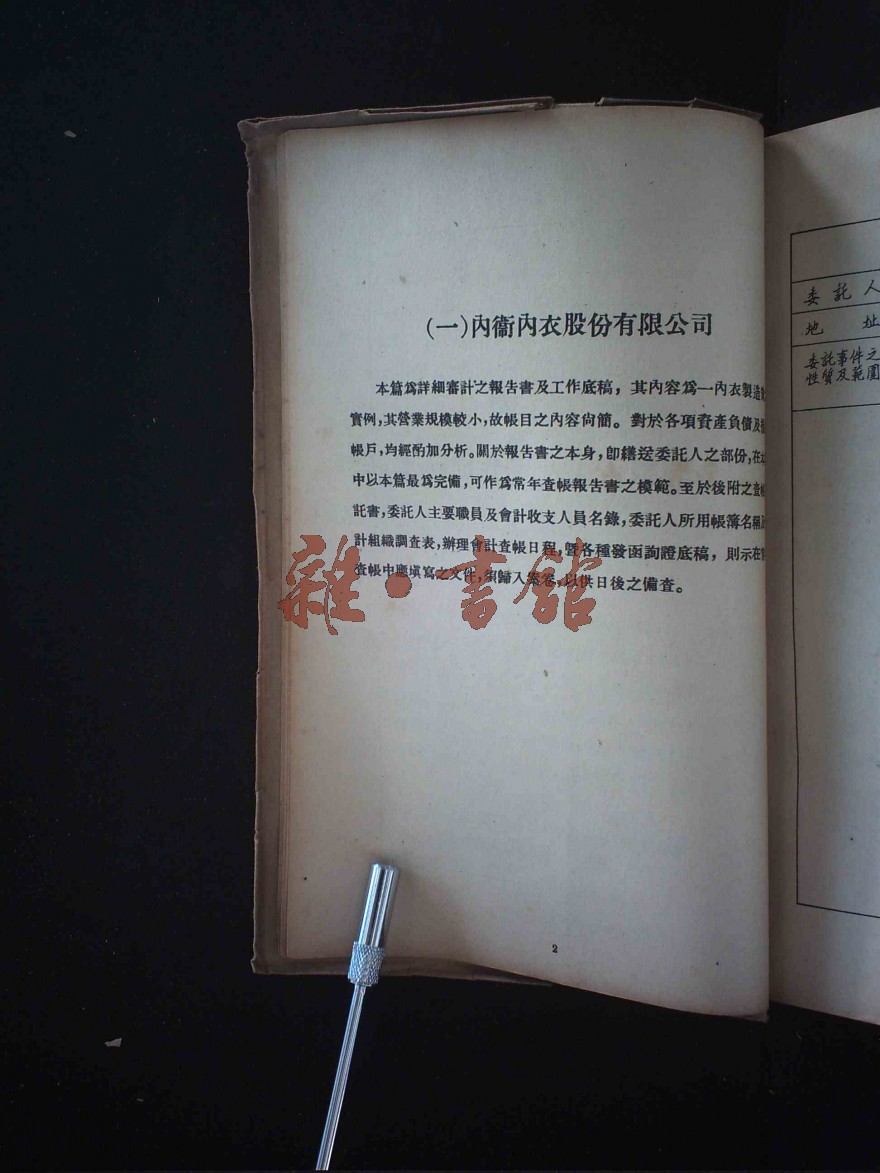 (一)內衞內衣股份有限公司
本篇爲詳細審計之報吿書及工作底稿，其內容爲一內衣製造
實例，其營業規模較小，故帳目之內容尙簡。對於各項資產負債及
帳戶，均經酌加分析。關於報吿書之本身，卽繕送委託人之部份，在
中以本篇最爲完備，可作爲常年查帳報吿書之模範。至於後附之查
託書，委託人主要職員及會計收支人員名錄，委託人所用帳簿名稱
計組織調查表，辦理會計查帳日程，曁各種發函詢證底稿，則示在
查帳中應塡寫之文件，須歸入案卷，以供日後之備查。
2
雜·書館
委託人
地址
委託事件之
性質及範圍